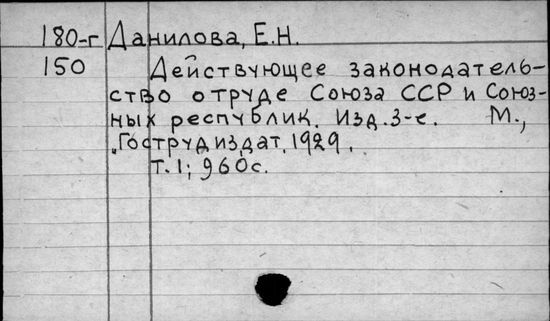 180-г Данилова, Е.Н.
150 Действующее законодатель-
ство о труде Союза ССР и Союз-
ных республик. Изд. 3-е. М.,
"Гострудиздат, 1929.
Т.1; 960с.